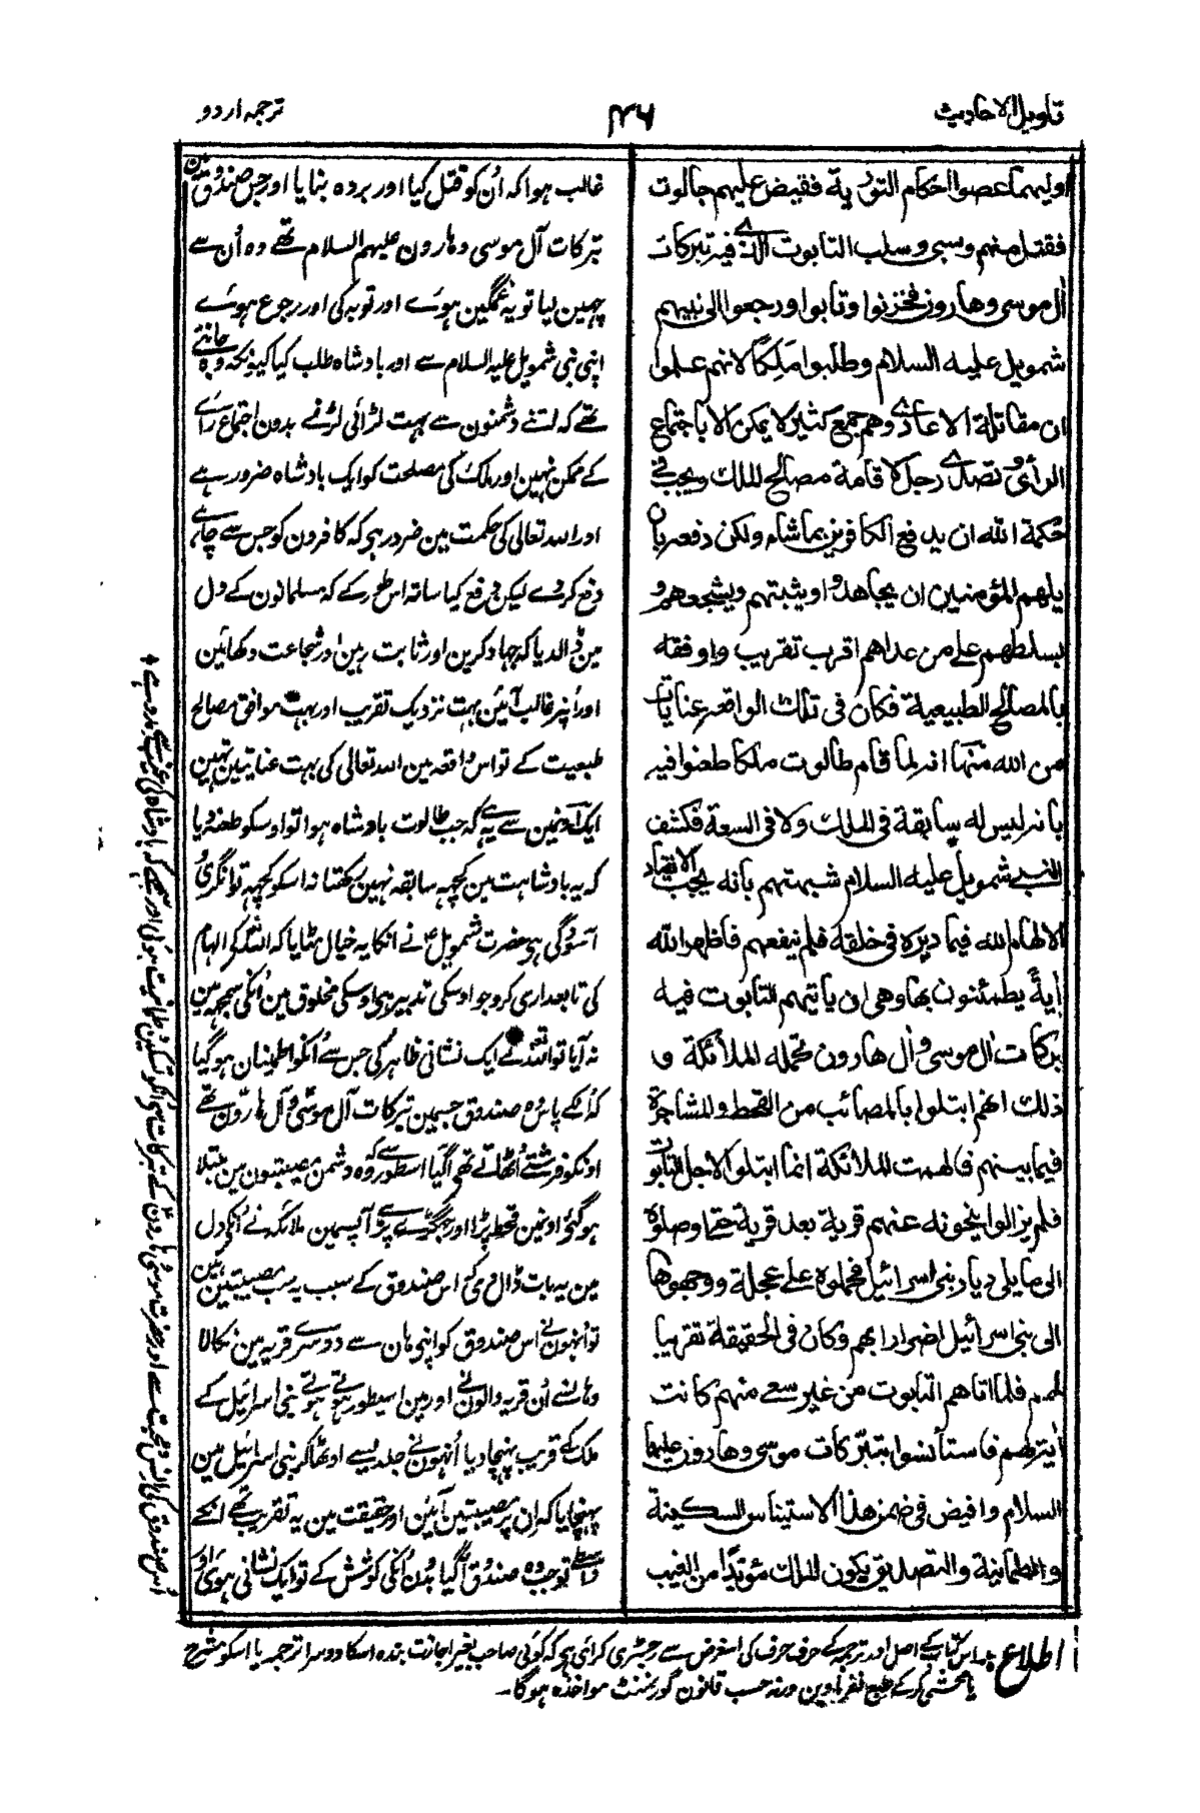 تاویل الاحادیث
۴۶
ترجمہ اردو
اولیهما عصوا احکام التوریة فقیض علیهم جالوت
فقتل منهم وسبی وسلب التابوت الذی فیه تبرکات
اٰل موسی وهارون فحزنوا وتابوا ورجعوا الی نبیهم
شمویل علیه السلام وطلبوا مَلِکًا لانهم علموا
ان مقاتلة الاعادی وهم جمع کثیر لا یمکن الا باجتماع
الرأی وتصدی رجل لاقامة مصالح الملک ویجب فی
حکمة الله ان یدفع الکافرین بما شاء ولکن دفعه بان
یلهم المؤمنین ان یجاهدوا ویثبتهم ویشجعهم و
یسلطهم علی من عداهم اقرب تقریب واوفقه
بالمصالح الطبیعیة فکان فی تلک الواقعة عنایات
من الله منها انه لما قام طالوت ملکا طعنوا فیه
بانه لیس له سابقة فی الملک ولا فی السعة فکشف
النبی شمویل علیه السلام شبهتهم بانه یجب الانقیاد
لالهام الله فیما دبره فی خلقه فلم ینفعهم فاظهر الله
اٰیةً یطمئنون بها وهی ان یاتیهم التابوت فیه
برکات اٰل موسی واٰل هارون تحمله الملائکة و
ذلک انهم ابتلوا بالمصائب من القحط والمشاجرة
فیما بینهم فالهمت الملائکة انما ابتلوا لاجل التابوت
فلم یزالوا ینحونه عنهم قریة بعد قریة حتی وصلوه
الی ما یلی دیار بنی اسرائیل فحملوه علی عجلة ووجهوها
الی بنی اسرائیل اضرارا بهم وکان فی الحقیقة تقریبا
لهم فلما اتاهم التابوت من غیر سعی منهم کانت
اٰیة لهم فاستأنسوا بتبرکات موسی وهارون علیهما
السلام وافیض فی ضمن هذا الاستیناس السکینة
والطمانیة والتصدیق بکون الملک مؤیدًا من الغیب
غالب ہوا کہ اُن کو قتل کیا اور بردہ بنایا اور جس صندوق میں
تبرکات آل موسی و ہارون علیہم السلام تھے وہ اُن سے
چہین لیا تو یہ غمگین ہوئے اور توبہ کی اور رجوع ہوئے
اپنی نبی شمویل علیہ السلام سے اور بادشاہ طلب کیا کیونکہ وہ جانتے
تھے کہ اتنے دشمنون سے بہت لڑائی لڑنے بدون اجتماع رائے
کے ممکن نہین اور ملک کی مصلحت کو ایک بادشاہ ضرور ہے
اور اللہ تعالی کی حکمت مین ضرور ہے کہ کافرون کو جس سے چاہے
دفع کر دے لیکن دفع کیا ساتہ اس طور کے کہ مسلمانون کے دل
مین ڈالدیا کہ جہاد کرین اور ثابت رہین اور شجاعت دکھائین
اور اُنپر غالب آئین بہت نزدیک تقریب اور بہت موافق مصالح
طبعیت کے تو اس واقعہ مین اللہ تعالی کی بہت عنایتین تہین
ایک اُنمین سے یہ ہے کہ جب طالوت بادشاہ ہوا تو اوسکو طعنہ دیا
کہ یہ بادشاہت مین کچہہ سابقہ نہین رکھتا نہ اسکو کچہہ توانگری
آسودگی ہے حضرت شمویلؑ نے انکا یہ خیال ہٹایا کہ اللہ کے الہام
کی تابعداری کرو جو اوسکی تدبیر ہے اوسکی مخلوق مین اُنکی سمجہہ مین
نہ آیا تو اللہ نے ایک نشانی ظاہر کی جس سے اُنکو اطمینان ہو گیا
کہ اُنکے پاس وہ صندوق جسمین تبرکات آل موسیٰ و آل ہارون تھے
اونکو فرشتے اُٹھاتے تھے آ گیا اسطور سے کہ وہ دشمن مصیبتون مین مبتلا
ہوگئے اونمین قحط پڑا اور جھگڑے پڑے آپسمین ملائکہ نے اُنکے دل
مین یہ بات ڈال دی کہ اس صندوق کے سبب یہ سب مصیبتین ہین
تو اُنہون نے اس صندوق کو اپنی ہان سے دوسرے قریہ مین نکالا
وہانسے اُن قریہ والون نے اور مین اسیطور ہوتے ہوتے بنی اسرائیل کے
ملک کے قریب پہنچا دیا اُنہون نے جلدیسے اوٹھا کر بنی اسرائیل مین
پہنچایا کہ ان پر مصیبتین آئین اور حقیقت مین یہ تقریب تھے انکے
واسطے تو جب وہ صندوق آ گیا بدون اُنکی کوشش کے تو ایک نشانی ہوئی اور
اُس صندوق کی اُنس و محبت سے اور حضرت موسیٰ ہارونؑ کے تبرکات سے انکو تسکین و طمانیت ہوئی اور سمجھے کہ بادشاہ کی غیب سے مدد ہے +
اطلاع :۔ اس کتاب کے اصل اور ترجمہ کے حرف حرف کی اس غرض سے رجسٹری کرائی ہے کہ کوئی صاحب بغیر اجازت بندہ اسکا دوسرا ترجمہ یا اسکو مشرح
یا محشی کر کے طبع نفرماوین ورنہ حسب قانون گورنمنٹ مواخذہ ہوگا۔